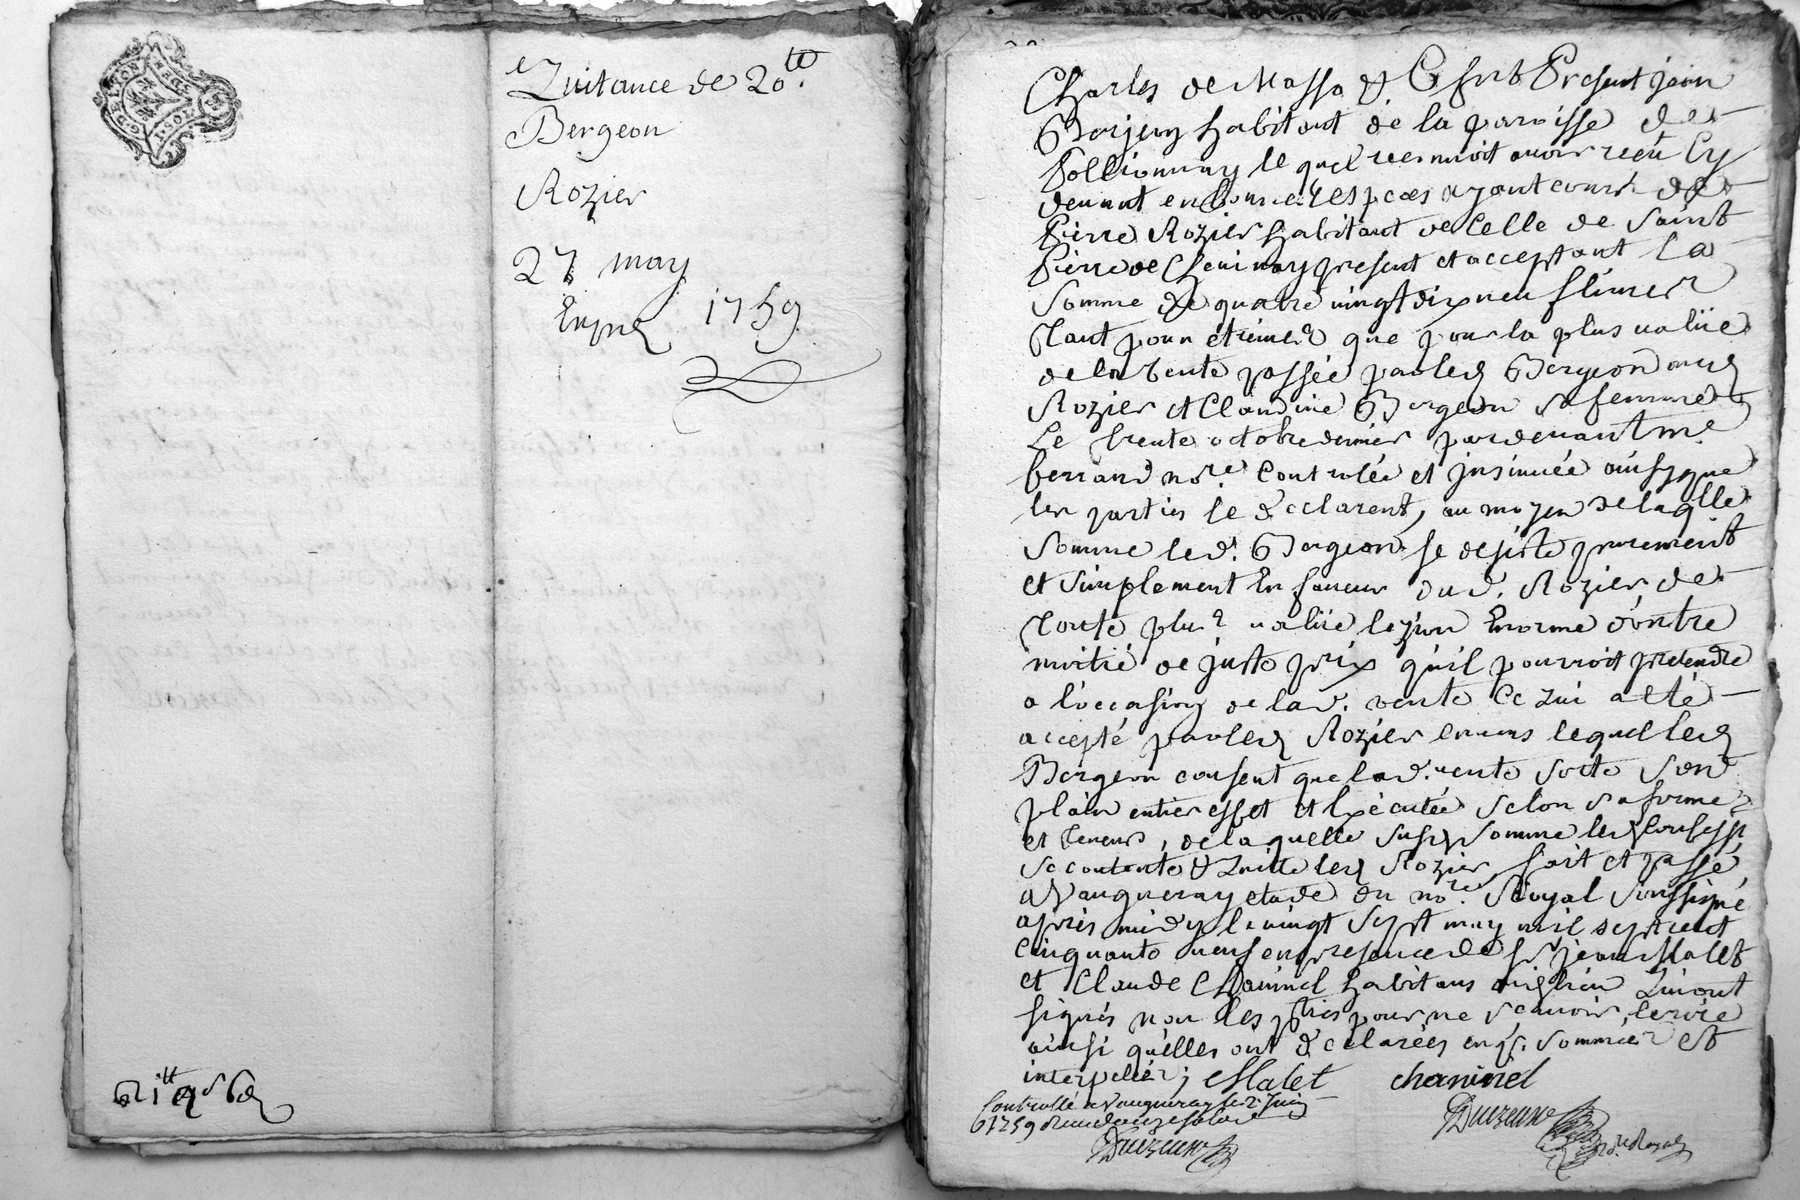 Quitance de 20tt.
Bergeon
Rozier
27 may
1759
Charles de Masso & C fut Present jean
Berjeon habitant de la paroisse de
Pollionnay le quel reconnoit avoir receu cy
devant en bonnes especes ayant cours de
Pierre Rozier habitant de Celle de Saint
Pierre de Chevinay present et acceptant La
Somme de quatre vingt dix neuf livres
Tant pour etrines que pour la plus valüe
de la vente passée par led Bergeon aud
Rozier et Claudine Bergeon sa femme
Le trente octobre dernier pardevant me
ferrand nore. Controlée et insinuée ainsy que
les parties le declarent, au moyen de laqlle
Somme led. Bergeon se desiste purement
et simplement En faveur dud. Rozier de
Toute plus valüe lezion Enorme d'outre
moitié de juste prix qu'il pourroit pretendre
a l'occasion de lad. vente Ce qui a eté
accepté par led Rozier envers lequel led
Bergeon consent que lad. vente sorte son
plain entier effet et Exécutée selon sa forme
et teneur, de laquelle susd somme led Confess
se contente & quitte led Rozier, fait et passé
a Vaugneray etude du nore. Royal soussigné
apres midy le vingt sept may mil sept cent
cinquante neuf en presence de sr jean Malet
et Claude Chaninel habitans audit lieu qui ont
signés non les pties pour ne scavoir ecrire
ainsi qu'elles ont declarées enqs. sommées et
interpellées; Malet chaninel
Controllé a Vaugneray le 2 Juin
1759 Reçu douze sols
Duizeux
Duizeux
nore Royal